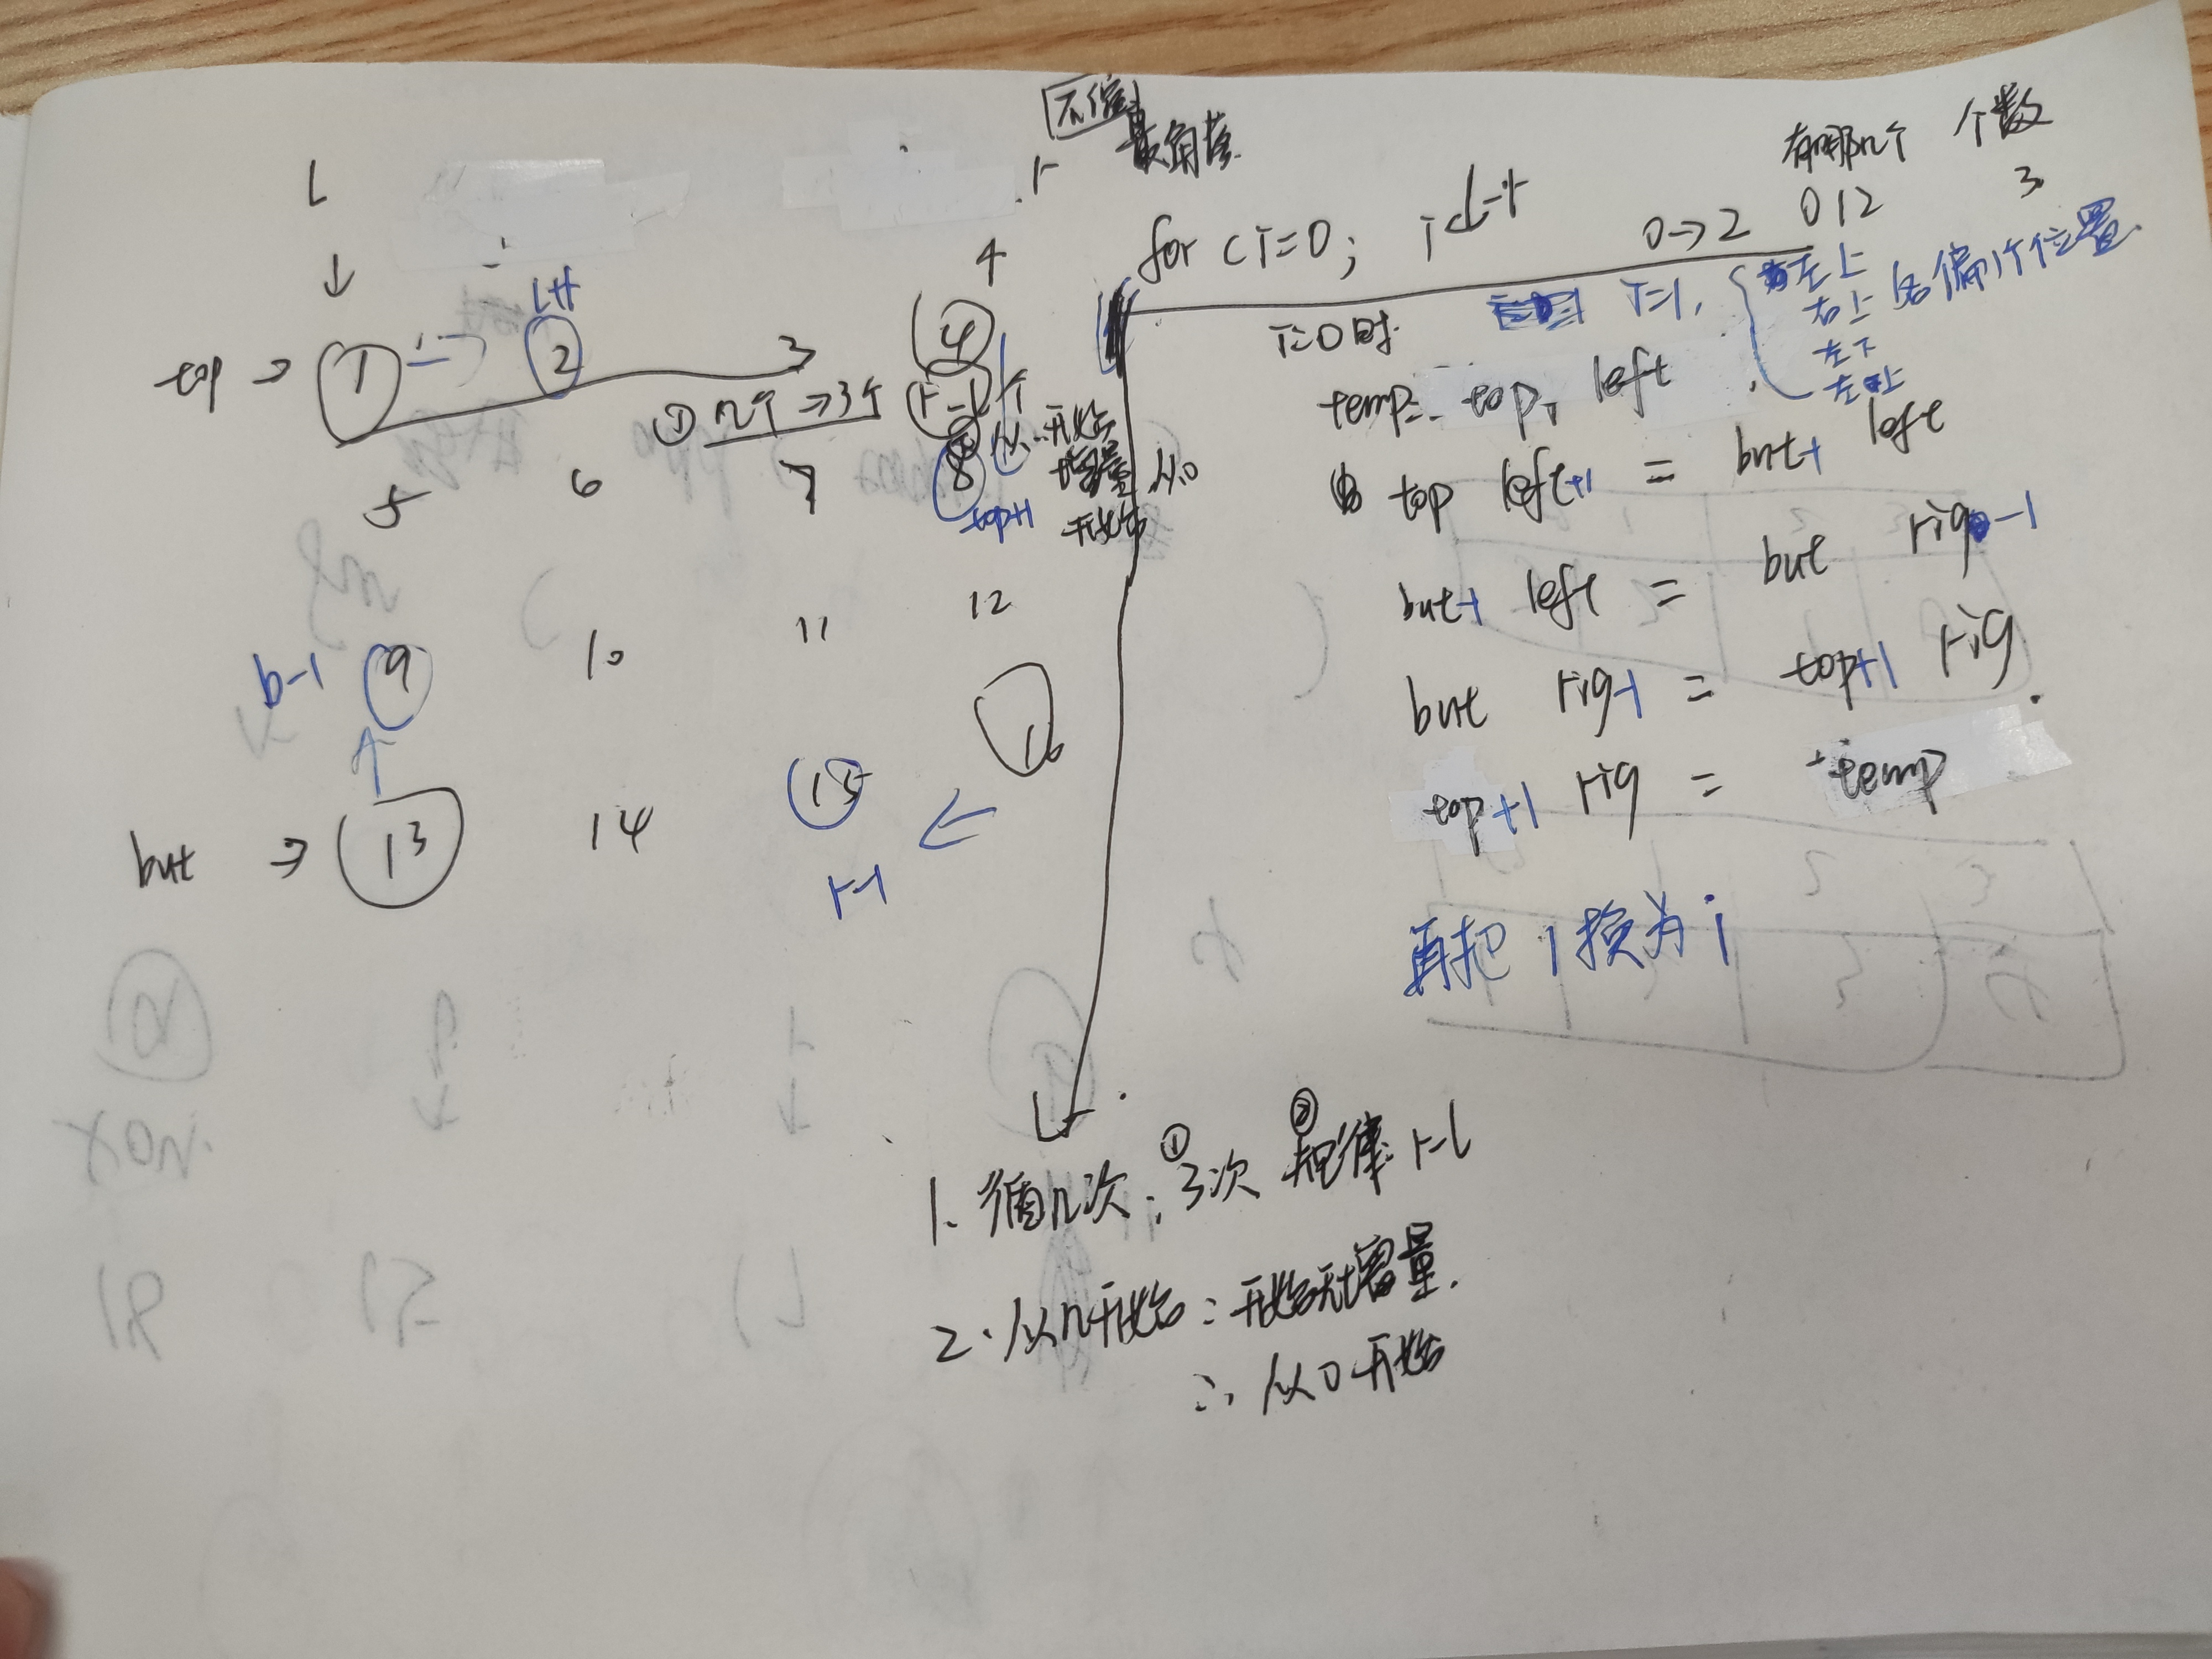 l
r
最角落
有哪几个 个数
for (i=0; i<l-r 0→2 012 3
4
↓
l+1
i=0时 i=1, 左上
右上 各偏1个位置
左下
top → 1 2 3 4
① 几个 → 3个 r-l个
从 开始
增量 从0
开始
temp = top, left
5 6 7 8
top+1
top left+1 = but-1 left
but-1 left = but rig-1
but rig-1 = top+1 rig
top+1 rig = temp
b-1 9 10 11 12
but → 13 14 15 16
r-1
再把 1 换为 i
1. 循几次: ① 3次 ② 规律: r-l
2. 从几开始: 开始无增量.
∴ 从0开始